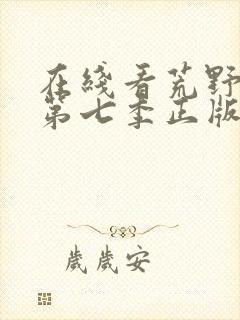 在綫看荒野
第七季正版
歲歲安